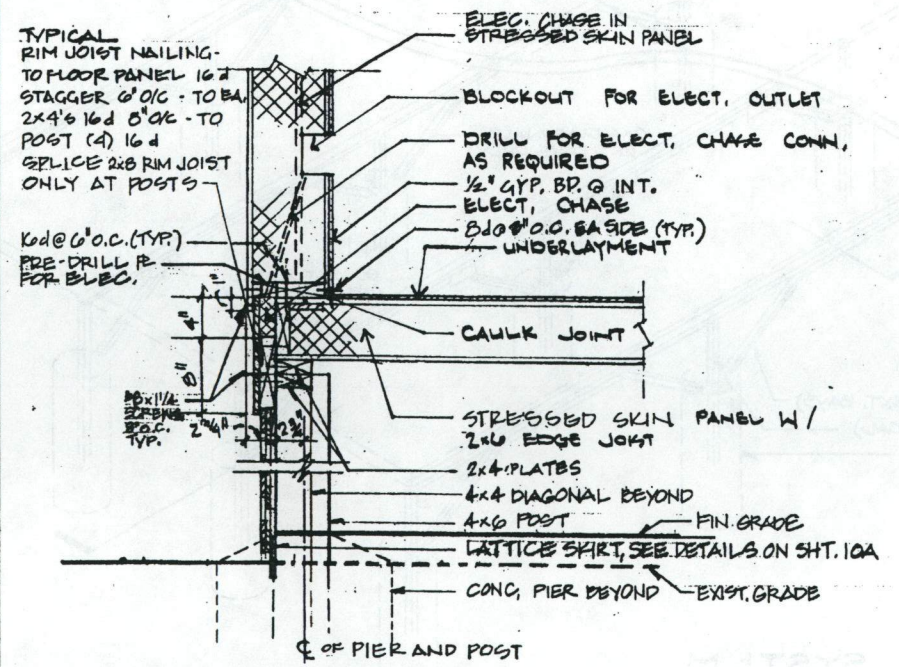 TYPICAL
RIM JOIST NAILING-
TO FLOOR PANEL 16d
STAGGER 6" O/C - TO EA.
2x4's 16d 8" O/C - TO
POST (4) 16d
SPLICE 2x8 RIM JOIST
ONLY AT POSTS
16d @ 6" O.C. (TYP.)
PRE-DRILL PL
FOR ELEC.
1"
4"
8"
#8 x 1 1/4
SCREWS
8" O.C.
TYP.
2"
ELEC. CHASE IN
STRESSED SKIN PANEL
BLOCKOUT FOR ELECT. OUTLET
DRILL FOR ELECT. CHASE CONN,
AS REQUIRED
1/2" GYP. BD. @ INT.
ELECT. CHASE
8d @ 8" O.C. EA SIDE (TYP.)
UNDERLAYMENT
CAULK JOINT
STRESSED SKIN PANEL W/
2x6 EDGE JOIST
2x4 PLATES
4x4 DIAGONAL BEYOND
4x6 POST
FIN. GRADE
LATTICE SKIRT, SEE DETAILS ON SHT. 10A
CONC, PIER BEYOND
EXIST. GRADE
℄ OF PIER AND POST